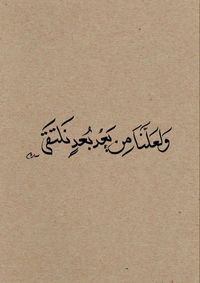 وَلَعَلَّنَا مِن بَعْدِ بُعدٍ نَلتَقي